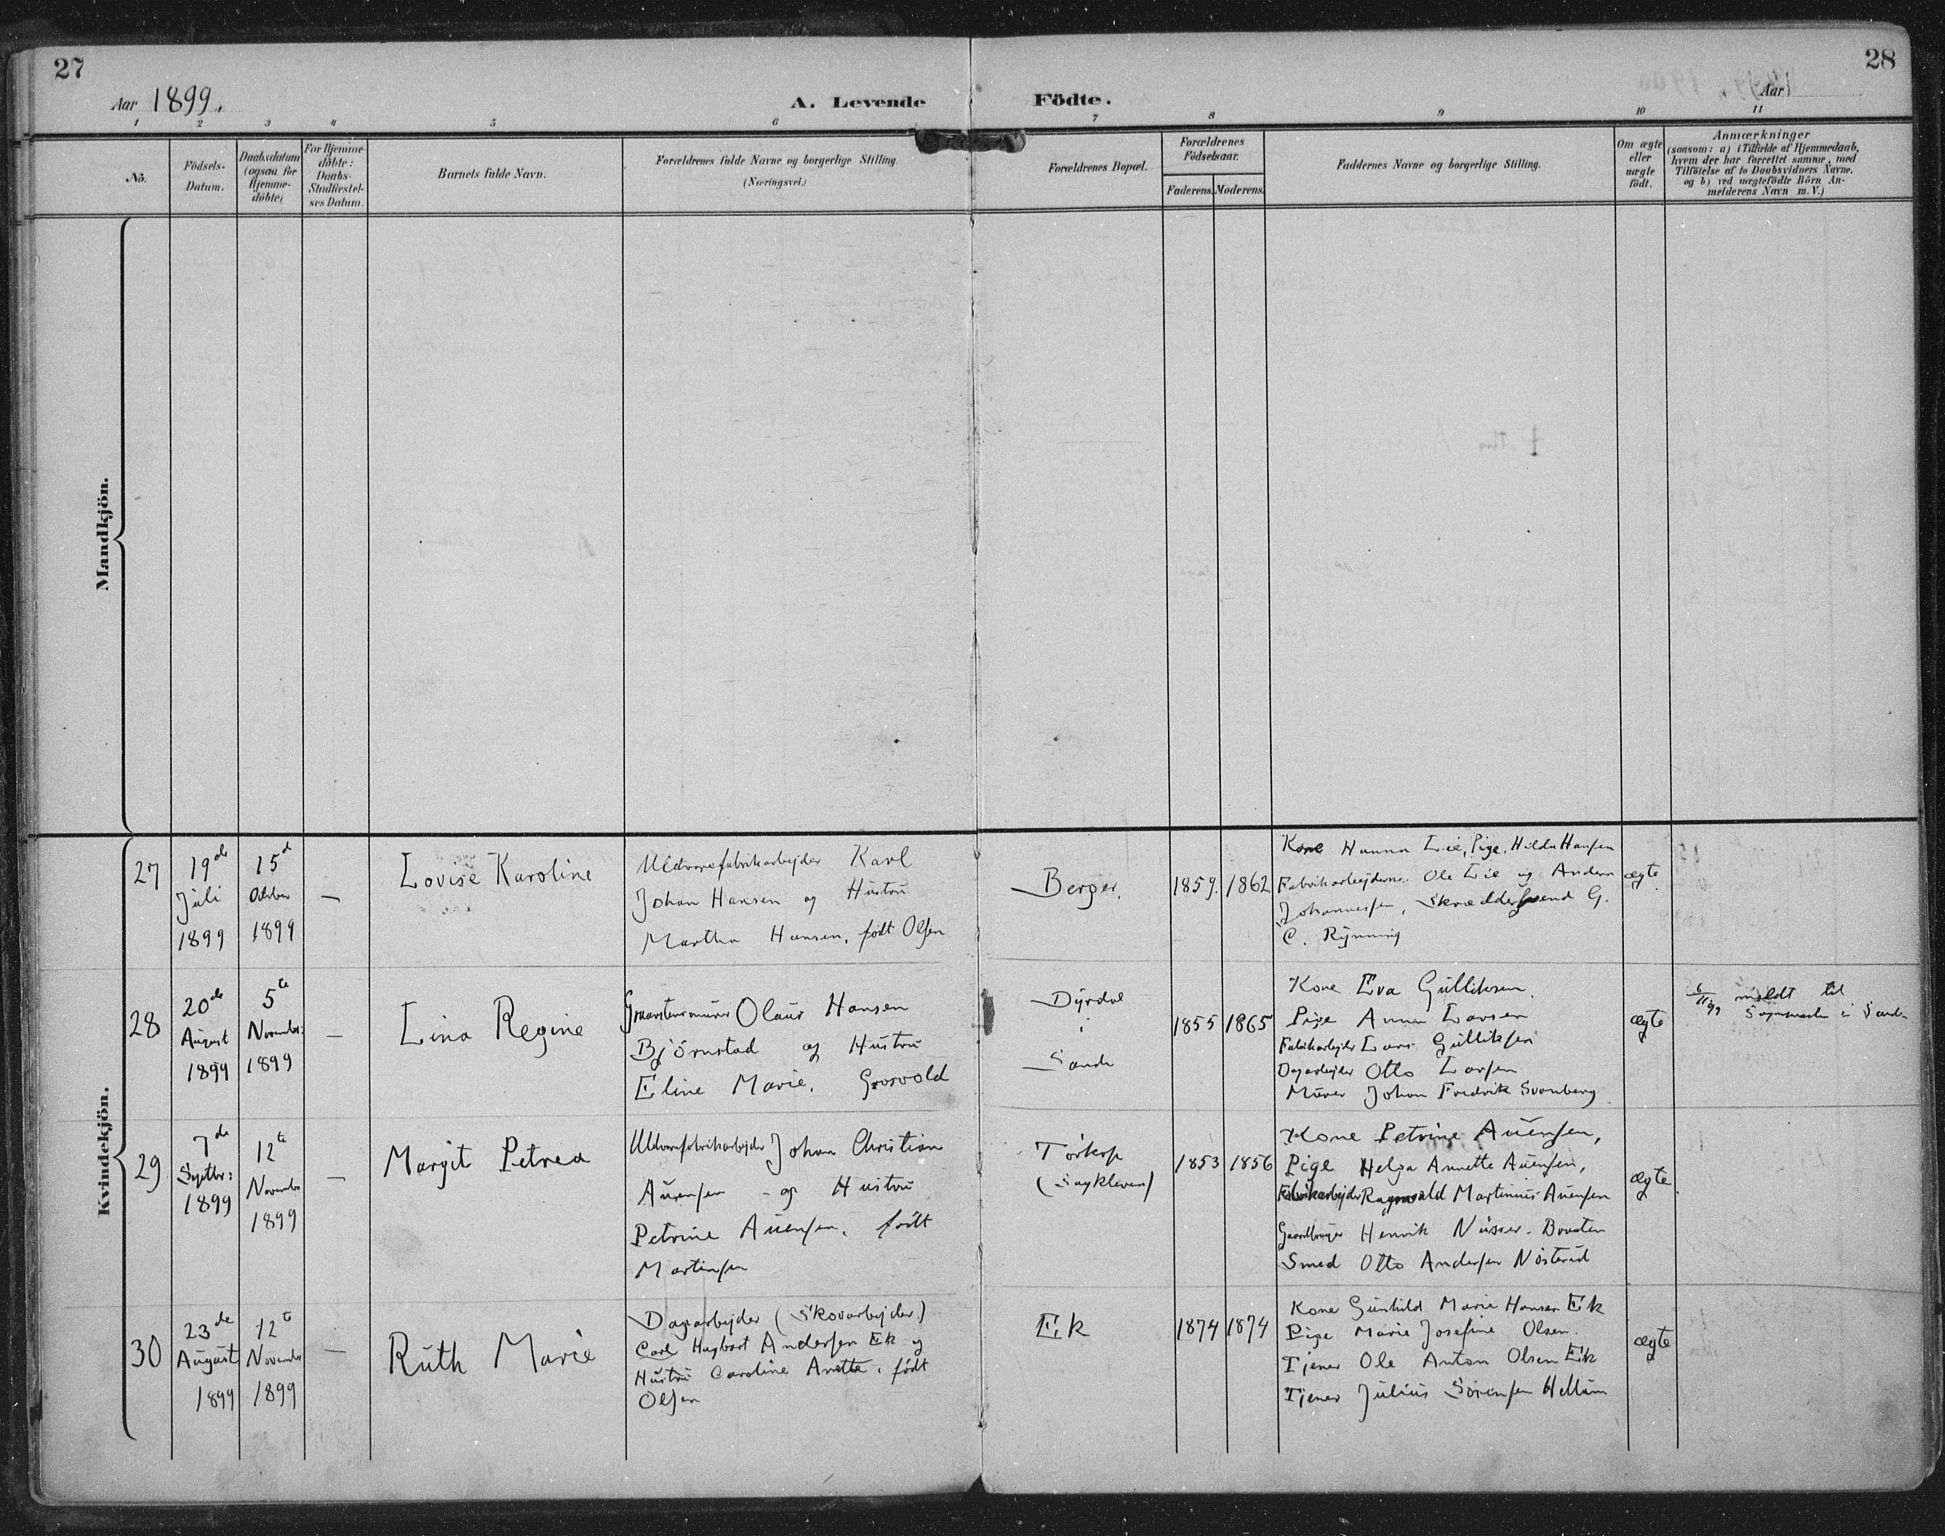 27
28
Aar 1899.
A. Levende Födte.
Aar
1 2 3 4 5 6 7 8 9 10 11
No.
Födsels-
Datum.
Daabsdatum
(ogsaa for
Hjemme-
döbte)
For Hjemme-
döbte:
Daabs-
Stadfæstel-
ses Datum.
Barnets fulde Navn.
Forældrenes fulde Navne og borgerlige Stilling.
(Næringsvei.)
Forældrenes Bopæl.
Forældrenes
Födselsaar.
Faderens. Moderens.
Faddernes Navne og borgerlige Stilling.
Om ægte
eller
uægte
födt.
Anmærkninger
(saasom: a) i Tilfælde af Hjemmedaab,
hvem der har forrettet samme, med
Tilföielse af to Daabsvidners Navne,
og b) ved uægtefödte Börn An-
melderens Navn m. V.)
Mandkjön.
Kvindekjön.
27
19de
Juli
1899
15d
Oktober
1899
—
Lovise Karoline
Uldvarefabrikarbejder Karl
Johan Hansen og Hustru
Martha Hansen, født Olsen
Berger.
1859. 1862
Kone Hanna Lie, Pige Hilda Hansen
Fabrikarbejderne Ole Lie og Anders
Johannessen, Skræddersvend G.
C. Rynning
ægte.
28
20de
August
1899
5te
November:
1899
—
Lina Regine
Graastensmurer Olaus Hansen
Björnstad og Hustru
Eline Marie.
Dyrdal
i
Sande
1855 1865
Kone Eva Gulliksen.
Pige Anna Larsen
Fabrikarbejder Lars Gulliksen
Dagarbejder Otto Larsen
Murer Johan Fredrik Svanberg
ægte
6/11 99 meldt til
i Sande
29
7de
Septbr:
1899
12te
November
1899
—
Margit Petrea
Uldvarefabrikarbejder Johan Christian
Auensen og Hustru
Petrine Auensen, født
Martinsen
Tørkop
1853 1856
Kone Petrine Auensen,
Pige Helga Annette Auensen,
Fabrikarbejder Ragnvald Martinius Auensen
Gaardbruger Henrik
Smed Otto Andersen Nøsterud
ægte.
30
23de
August
1899
12te
November
1899
—
Ruth Marie
Dagarbejder (Skovarbejder)
Carl Hagbart Andersen Ek og
Hustru Caroline Anette, født
Olsen
Ek
1874 1874
Kone Gunhild Marie Hansen Ek
Pige Marie Josefine Olsen.
Tjener Ole Anton Olsen Ek
Tjener Julius Sørensen Hellum
ægte